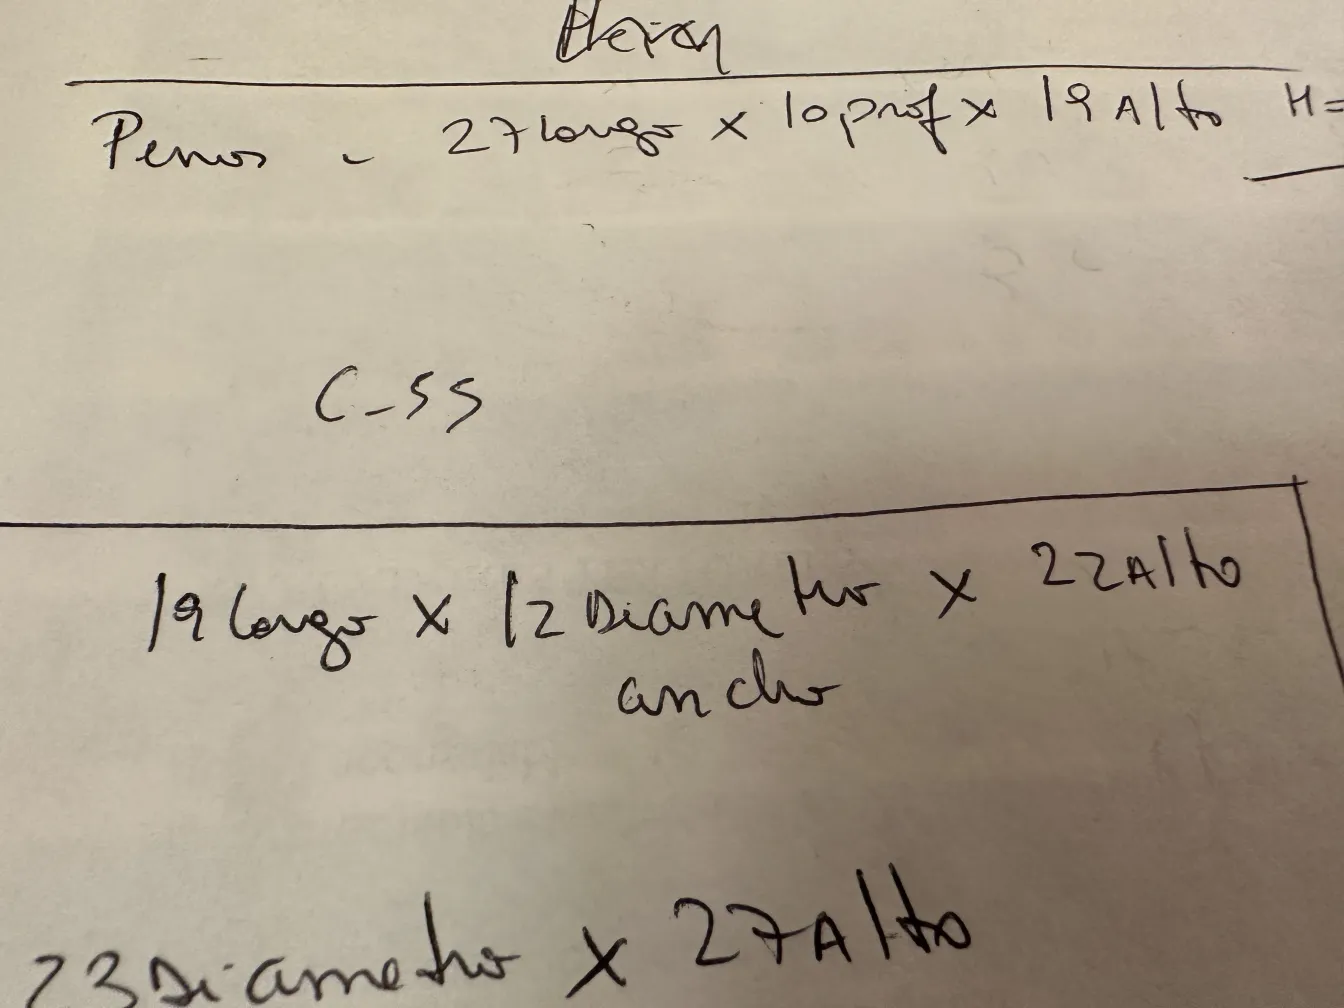 27 largo x 10 prof x 19 Alto H=
C-55
19 largo x 12 Diametro x 22 Alto
ancho
23 Diametro x 27 Alto